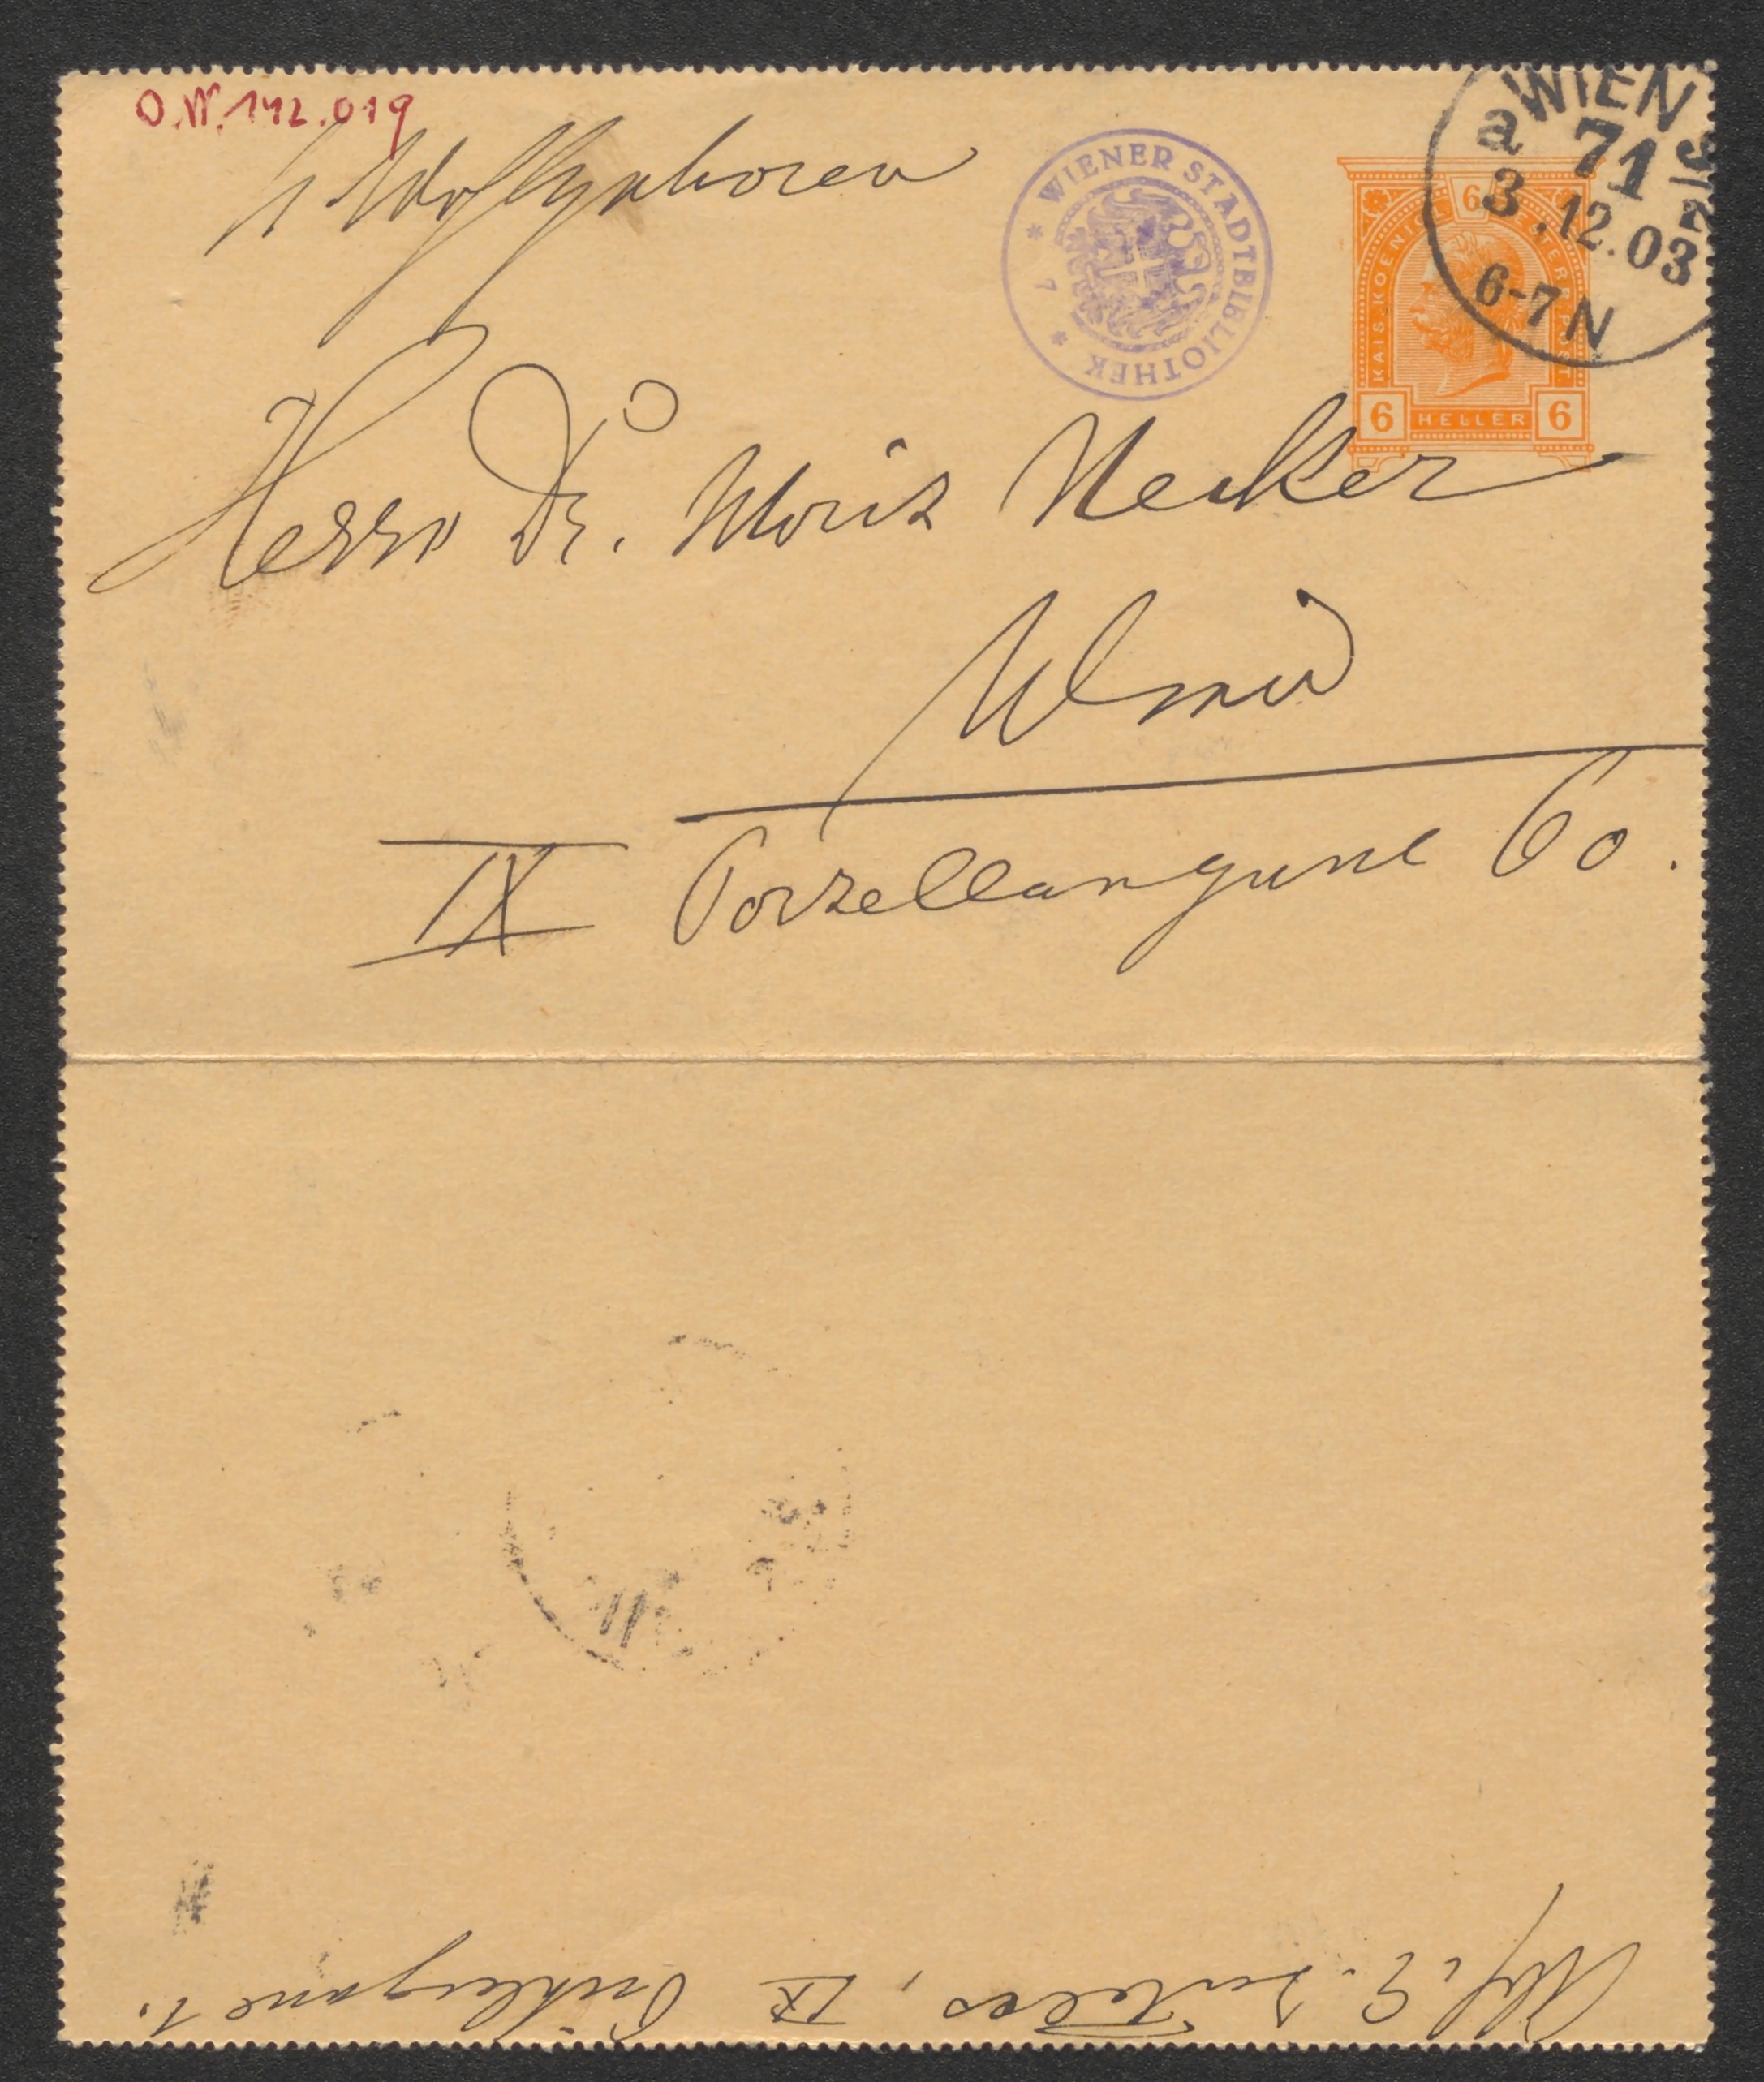 142.019
Wohlgeboren
* WIENER STADTBIBLIOTHEK * 7
WIEN
a 71
3.12.03
6-7N
6
KAIS. POST
6 HELLER 6
Herrn Dr. Moriz Necker
Wien
IX Porzellangasse 60.
IX Pichlergasse 1.